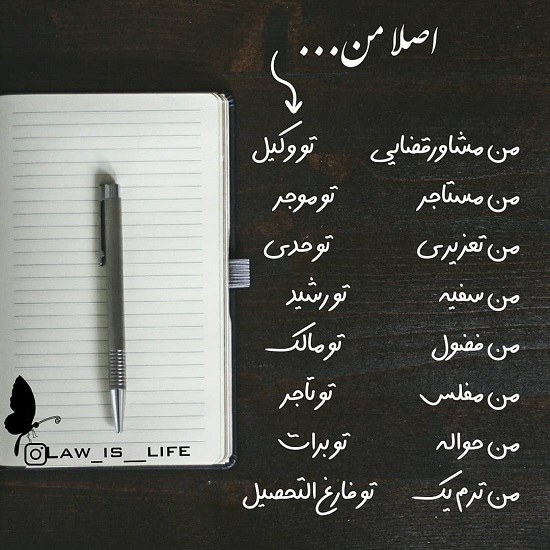 اصلا من...
من مشاورقضایی تو وکیل
من مستاجر تو موجر
من تعزیری تو حدی
من سفیه تو رشید
من فضول تو مالک
من مفلس تو تاجر
من حواله تو برات
من ترم یک تو فارغ التحصیل
LAW_IS__LIFE